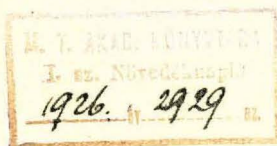 M. T. AKAD. KÖNYVTÁRA
I. sz. Növedéknapló
1926. év 2929 sz.